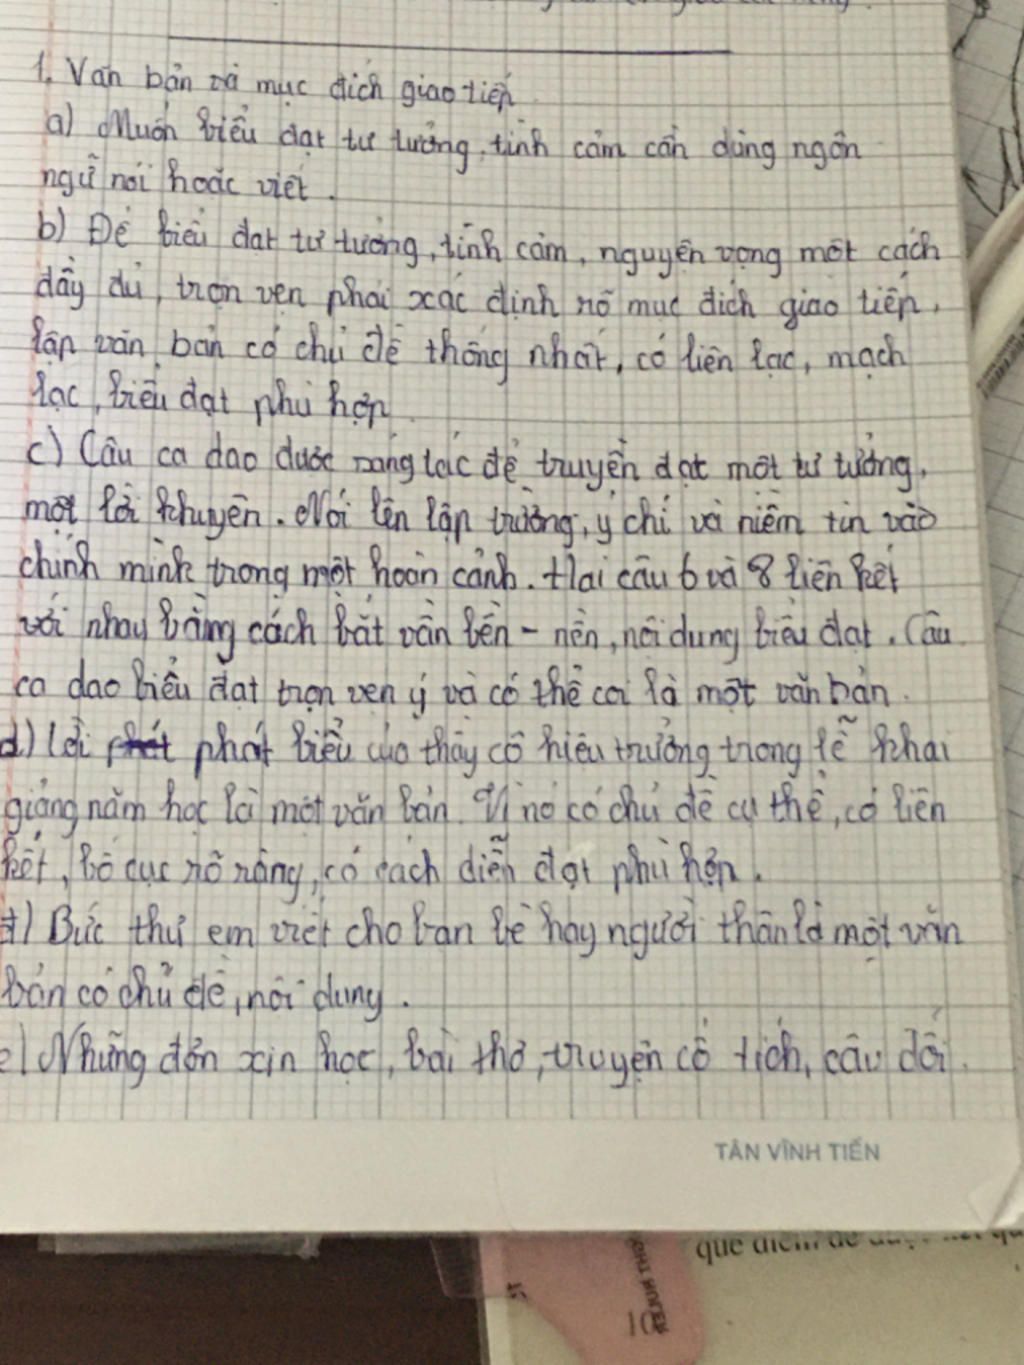 1. Văn bản và mục đích giao tiếp
a) Muốn biểu đạt tư tưởng, tình cảm cần dùng ngôn
ngữ nói hoặc viết.
b) Để biểu đạt tư tưởng, tình cảm, nguyện vọng một cách
đầy đủ, trọn vẹn phải xác định rõ mục đích giao tiếp,
lập văn bản có chủ đề thống nhất, có liên lạc, mạch
lạc, biểu đạt phù hợp
c) Câu ca dao được sáng tác để truyền đạt một tư tưởng,
một lời khuyên. Nói lên lập trường, ý chí và niềm tin vào
chính mình trong một hoàn cảnh. Hai câu 6 và 8 liên kết
với nhau bằng cách bắt vần bền - nền, nội dung biểu đạt. Câu
ca dao biểu đạt trọn vẹn ý và có thể coi là một văn bản.
d) Lời phát biểu của thầy cô hiệu trưởng trong lễ khai
giảng năm học là một văn bản. Vì nó có chủ đề cụ thể, có liên
kết, bố cục rõ ràng, có cách diễn đạt phù hợp.
đ) Bức thư em viết cho bạn bè hay người thân là một văn
bản có chủ đề, nội dung.
e) Những đơn xin học, bài thơ, truyện cổ tích, câu đối.
TÂN VĨNH TIẾN
10